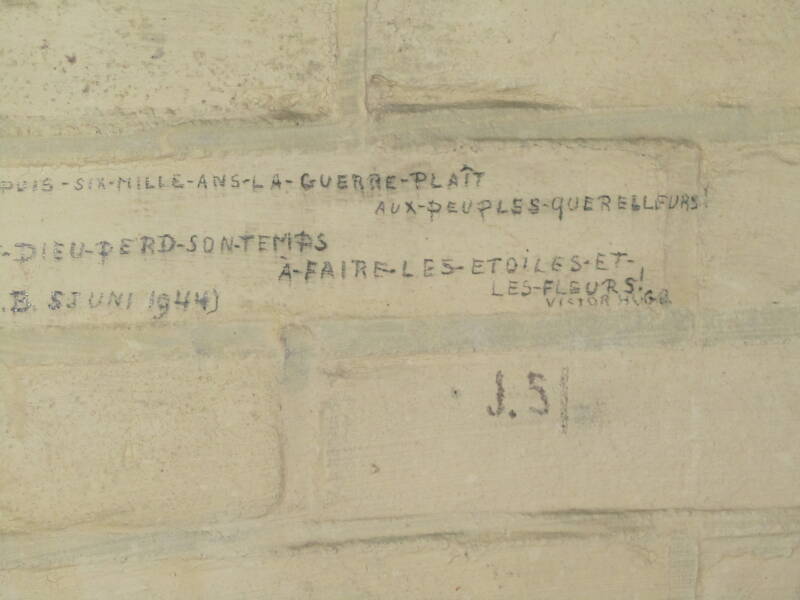 PUIS-SIX-MILLE-ANS-LA-GUERRE-PLAÎT
AUX-PEUPLES-QUERELLEURS!
-DIEU-PERD-SON-TEMPS
À-FAIRE-LES-ETOILES-ET-
LES-FLEURS!
VICTOR HUGO
.B. 5JUNI 1944)
J.S